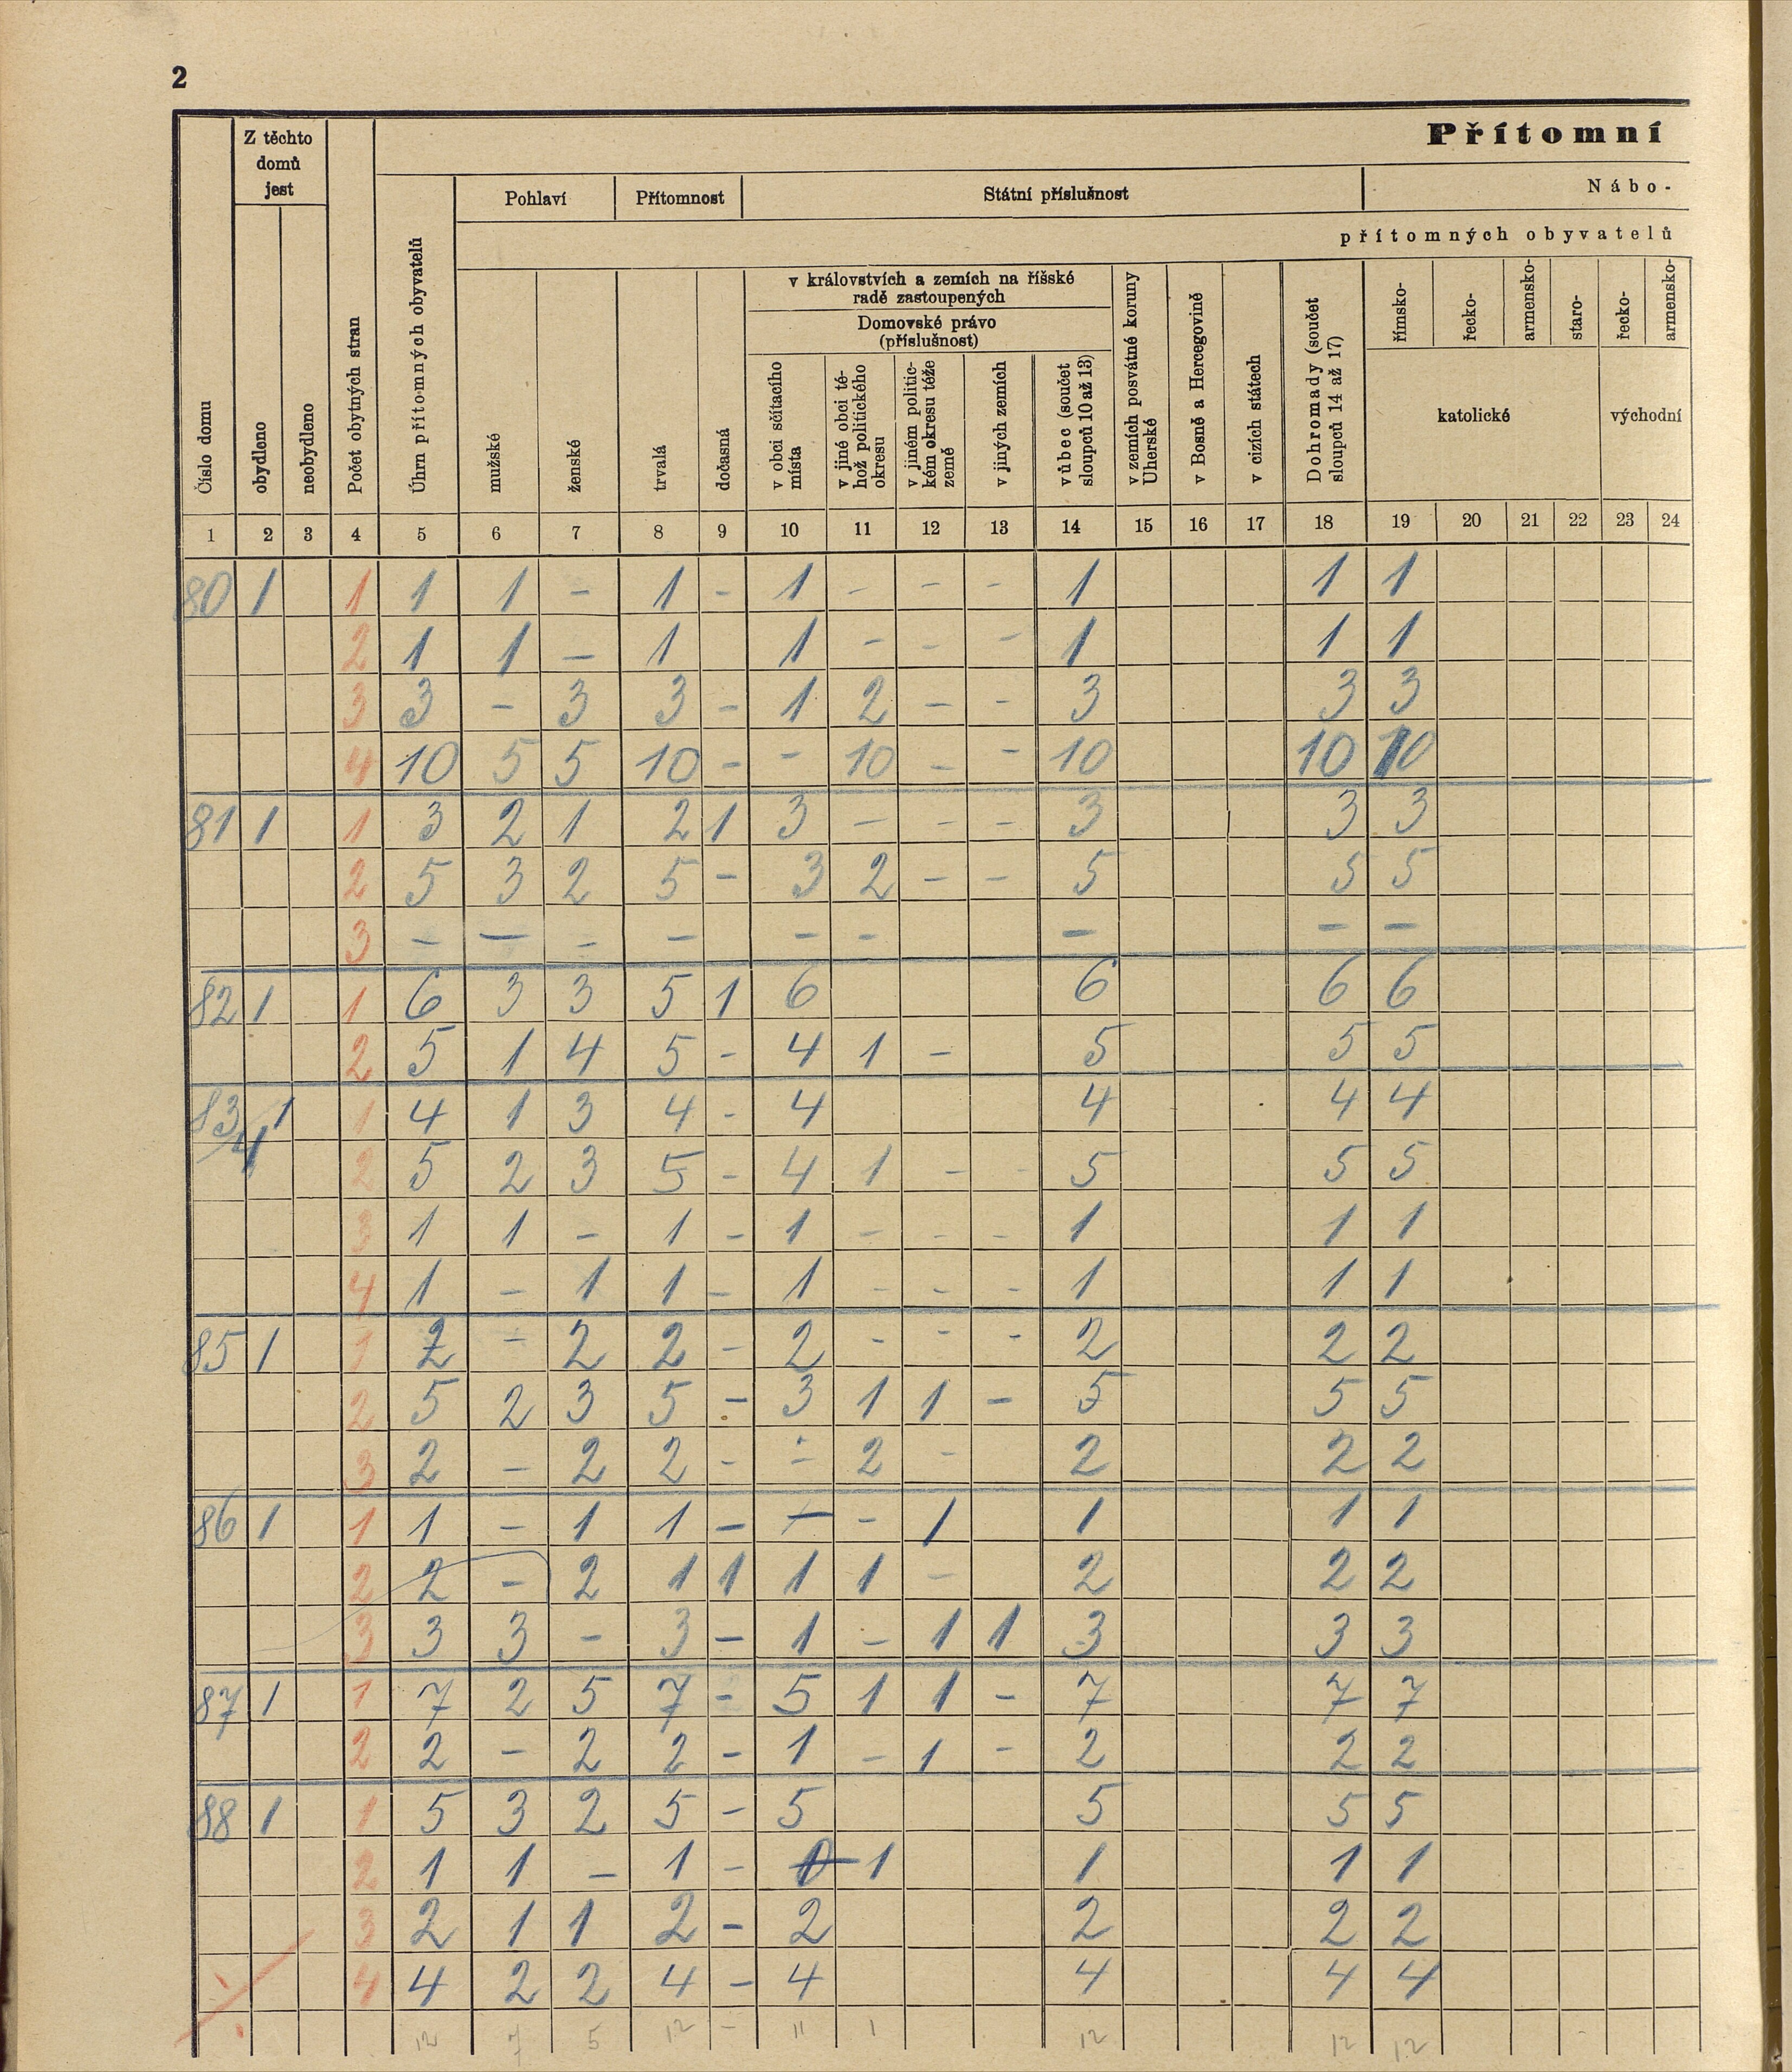 2
Přítomní
Z těchto domů jest
Pohlaví Přítomnost Státní příslušnost Nábo-
přítomných obyvatelů
v královstvích a zemích na říšské radě zastoupených
Domovské právo (příslušnost)
Číslo domu
obydleno
neobydleno
Počet obytných stran
Úhrn přítomných obyvatelů
mužské
ženské
trvalá
dočasná
v obci sčítacího místa
v jiné obci téhož politického okresu
v jiném politickém okresu téže země
v jiných zemích
vůbec (součet sloupců 10 až 13)
v zemích posvátné koruny Uherské
v Bosně a Hercegovině
v cizích státech
Dohromady (součet sloupců 14 až 17)
římsko-
řecko-
armensko-
staro-
řecko-
armensko-
katolické
východní
1 2 3 4 5 6 7 8 9 10 11 12 13 14 15 16 17 18 19 20 21 22 23 24
80 1 1 1 1 - 1 - 1 - - - 1 1 1
2 1 1 - 1 1 - - - 1 1 1
3 3 - 3 3 - 1 2 - - 3 3 3
4 10 5 5 10 - - 10 - - 10 10 10
81 1 1 3 2 1 2 1 3 - - - 3 3 3
2 5 3 2 5 - 3 2 - - 5 5 5
3 - - - - - - - - -
82 1 1 6 3 3 5 1 6 6 6 6
2 5 1 4 5 - 4 1 - 5 5 5
83/4 1 1 4 1 3 4 - 4 4 4 4
2 5 2 3 5 - 4 1 - - 5 5 5
3 1 1 - 1 - 1 - - - 1 1 1
4 1 - 1 1 - 1 - - - 1 1 1
85 1 1 2 - 2 2 - 2 - - - 2 2 2
2 5 2 3 5 - 3 1 1 - 5 5 5
3 2 - 2 2 - - 2 - 2 2 2
86 1 1 1 - 1 1 - - - 1 1 1 1
2 2 - 2 1 1 1 1 - 2 2 2
3 3 3 - 3 - 1 - 1 1 3 3 3
87 1 1 7 2 5 7 - 5 1 1 - 7 7 7
2 2 - 2 2 - 1 - 1 - 2 2 2
88 1 1 5 3 2 5 - 5 5 5 5
2 1 1 - 1 - 1 1 1 1
3 2 1 1 2 - 2 2 2 2
4 4 2 2 4 - 4 4 4 4
12 7 5 12 - 11 1 12 12 12